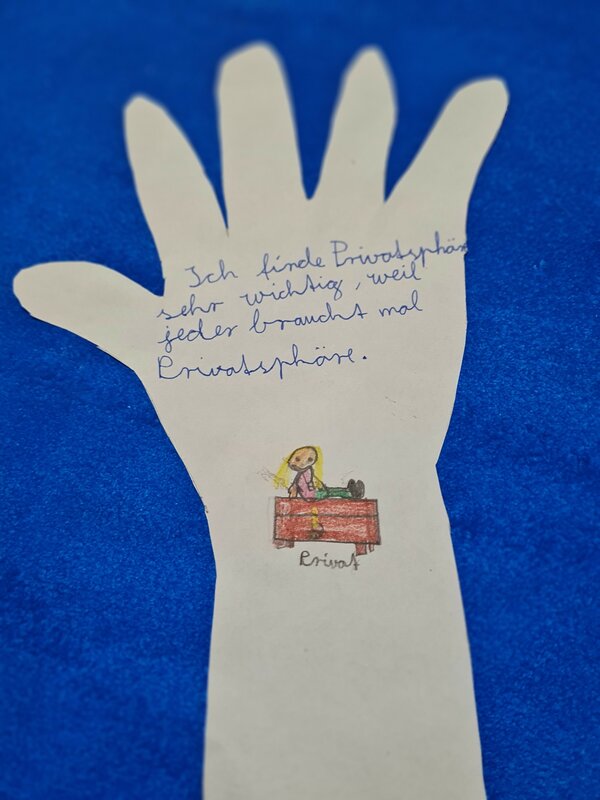 Ich finde Privatsphär
sehr wichtig, weil
jeder braucht mal
Privatsphäre.
Privat